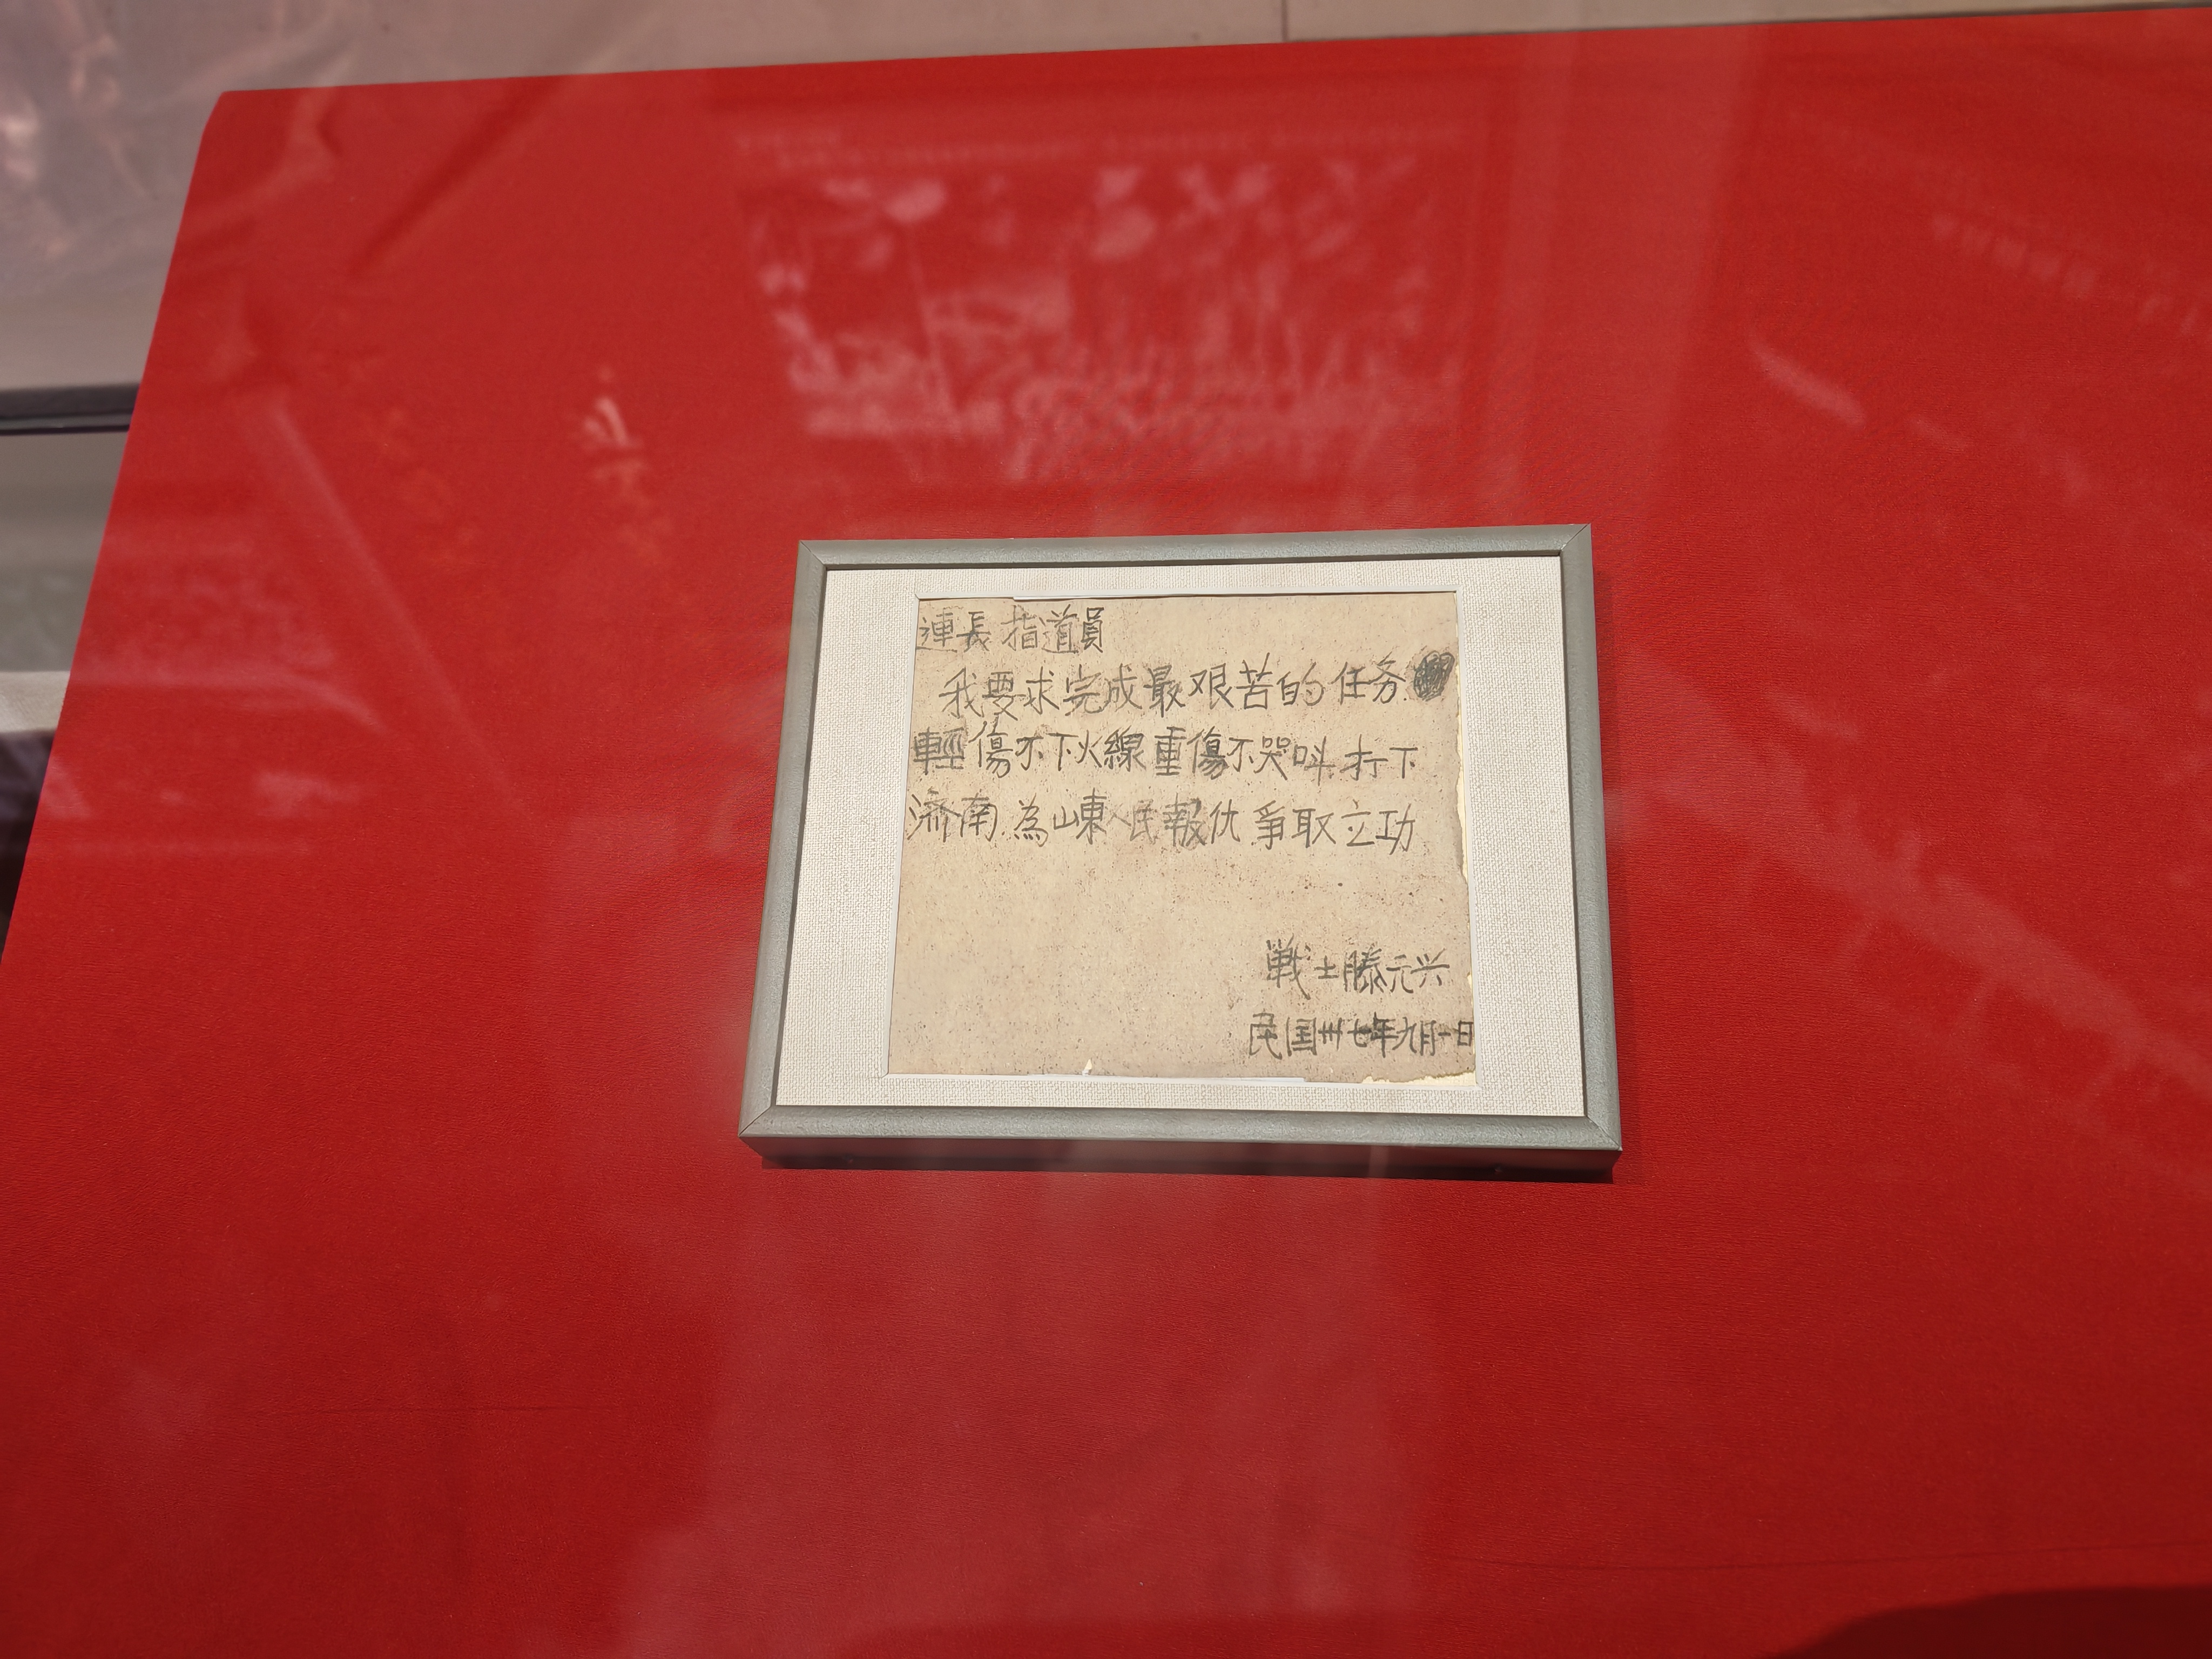 連長 指道員
我要求完成最艰苦的任务.
輕傷不下火線重傷不哭叫.打下
濟南.為山東人民報仇.爭取立功
戰士滕元兴
民国卅七年九月一日